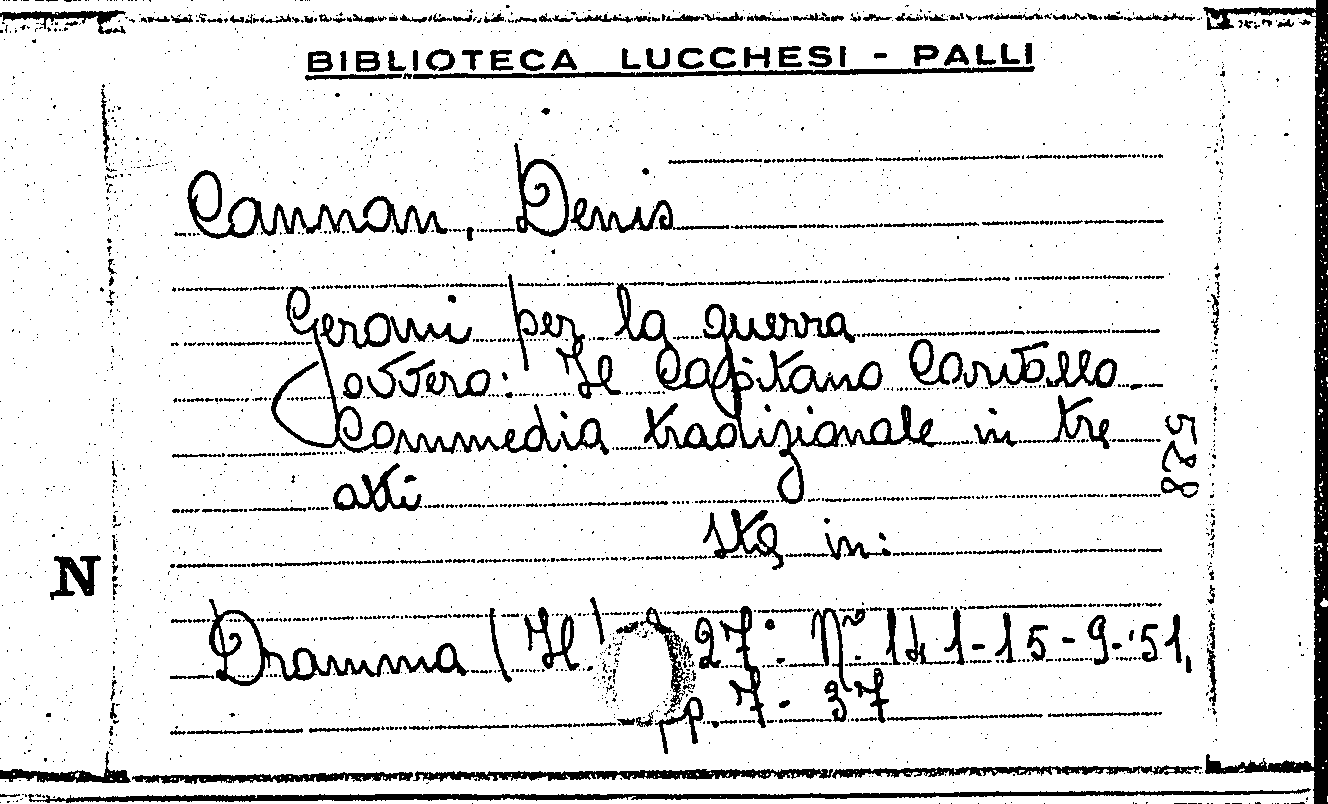 BIBLIOTECA LUCCHESI - PALLI
Cannan, Denis
Gerani per la guerra
ovvero: Il Capitano Carvallo.
Commedia tradizionale in tre
atti
sta in:
N
Dramma (Il) 27° N° 141-15-9-'51,
pp. 7-37